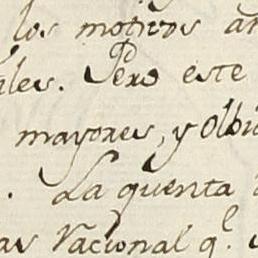 los motivos an
ales. Pero este
mayores, y olbi
. La quenta
as Nacional q.l